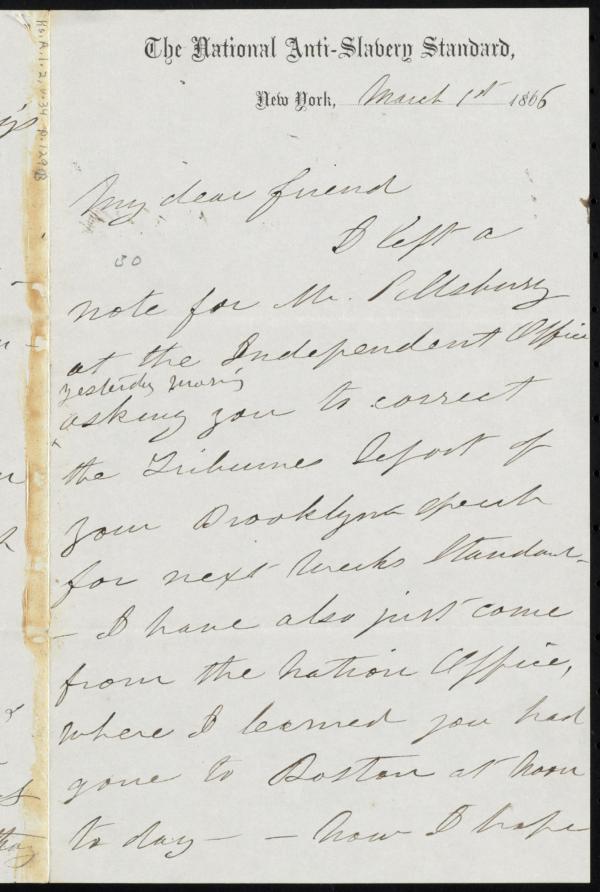 The National Anti-Slavery Standard,
New York, March 1st 1866
My dear friend
I left a
note for Mr. Pillsbury
at the Independent Office
yesterday morning
asking you to correct
the Tribunes Report of
your Brooklyn speech
for next weeks Standard
- I have also just come
from the Nation Office,
where I learned you had
gone to Boston at noon
to day - - now I hope